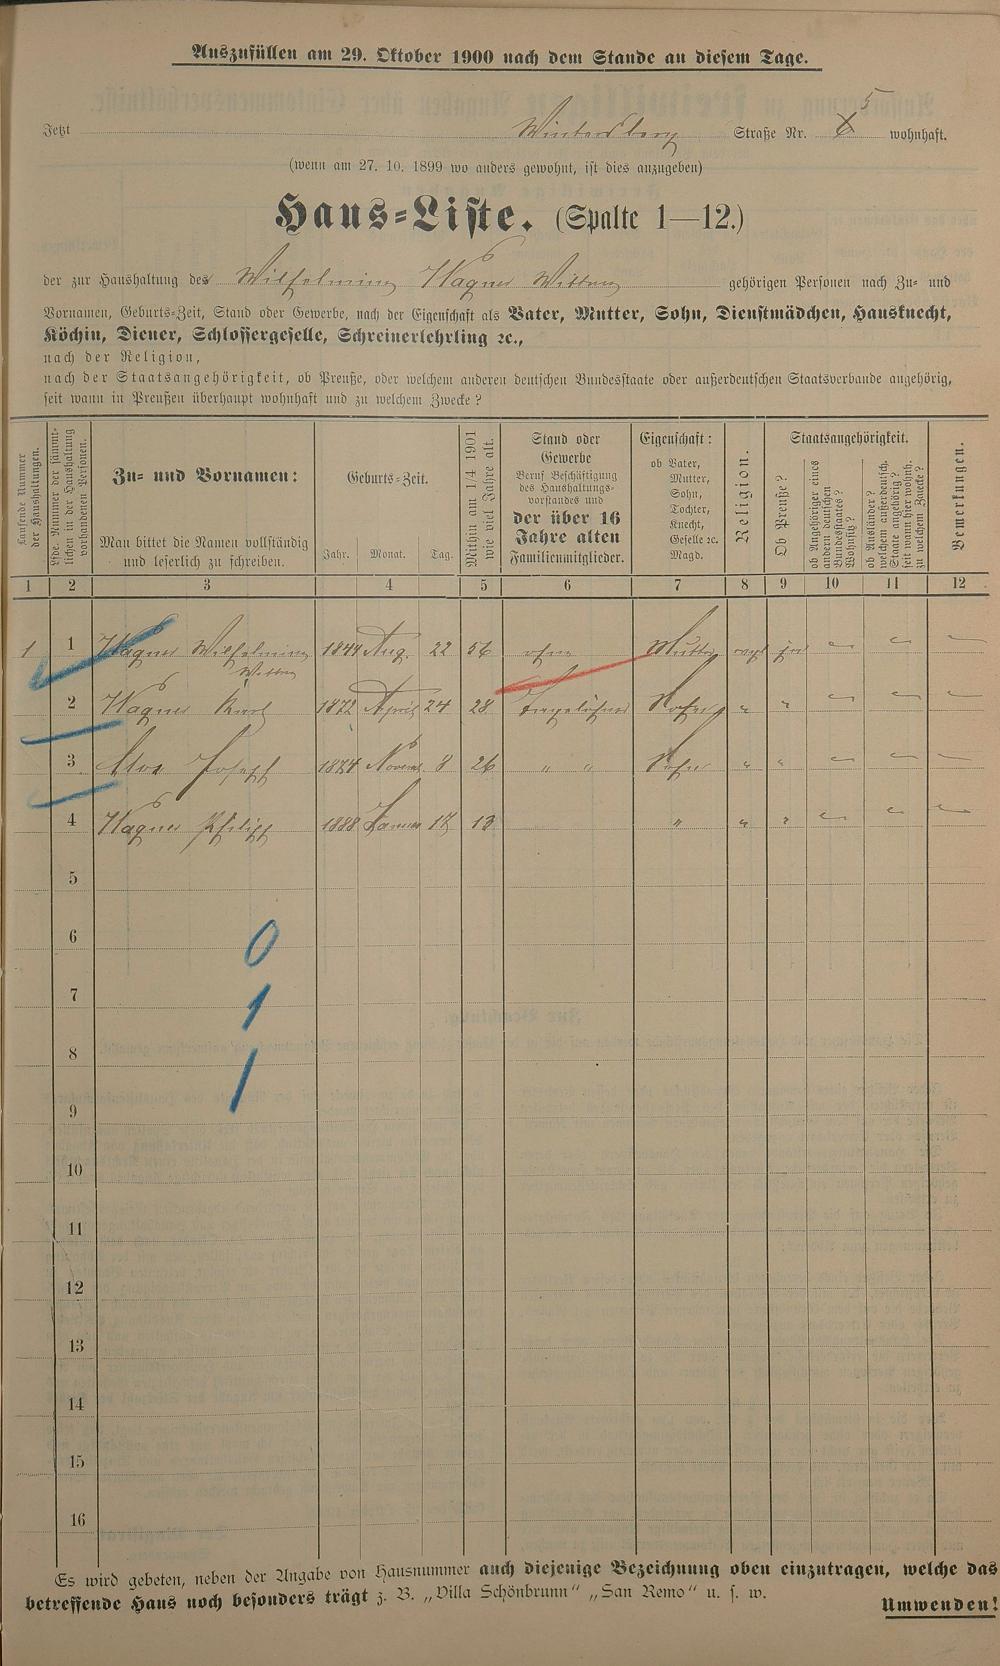 Auszufüllen am 29. Oktober 1900 nach dem Stande an diesem Tage.
Jetzt Wintersberg Straße Nr. 5 wohnhaft.
(wenn am 27. 10. 1899 wo anders gewohnt, ist dies anzugeben)
Haus-Liste. (Spalte 1—12.)
der zur Haushaltung des Wilhelmine Wagner Wittwe gehörigen Personen nach Zu- und
Vornamen, Geburts-Zeit, Stand oder Gewerbe, nach der Eigenschaft als Vater, Mutter, Sohn, Dienstmädchen, Hausknecht,
Köchin, Diener, Schlossergeselle, Schreinerlehrling ꝛc.,
nach der Religion,
nach der Staatsangehörigkeit, ob Preuße, oder welchem anderen deutschen Bundesstaate oder außerdeutschen Staatsverbande angehörig,
seit wann in Preußen überhaupt wohnhaft und zu welchem Zwecke?
Laufende Nummer der Haushaltungen.
Lfde. Nummer der sämmtlichen in der Haushaltung vorhandenen Personen.
Zu- und Vornamen:
Man bittet die Namen vollständig
und leserlich zu schreiben.
Geburts-Zeit.
Jahr. Monat. Tag.
Mithin am 1/4 1901 wie viel Jahre alt.
Stand oder
Gewerbe
Beruf Beschäftigung
des Haushaltungs-
vorstandes und
der über 16
Jahre alten
Familienmitglieder.
Eigenschaft:
ob Vater,
Mutter,
Sohn,
Tochter,
Knecht,
Geselle ꝛc.
Magd.
Religion.
Staatsangehörigkeit.
Ob Preuße?
ob Angehöriger eines andern deutschen Bundesstaates? Wohnsitz?
ob Ausländer? welchem außerdeutsch. Staate angehörig? seit wann hier wohnh. zu welchem Zwecke?
Bemerkungen.
1 2 3 4 5 6 7 8 9 10 11 12
1 1 Wagner Wilhelmine 1844 Aug. 22 56 ohne Mutter evgl ja — — —
Wittwe
2 Wagner Karl 1872 April 24 28 Tagelöhner Sohn " " — — —
3 Joseph 1874 Novem. 8 26 " " Sohn " " — — —
4 Wagner Philipp 1888 Januar 13 " " " — — —
5
6 0
7 1
8 1
9
10
11
12
13
14
15
16
Es wird gebeten, neben der Angabe von Hausnummer auch diejenige Bezeichnung oben einzutragen, welche das
betreffende Haus noch besonders trägt z. B. „Villa Schönbrunn" „San Remo" u. s. w.
Umwenden!